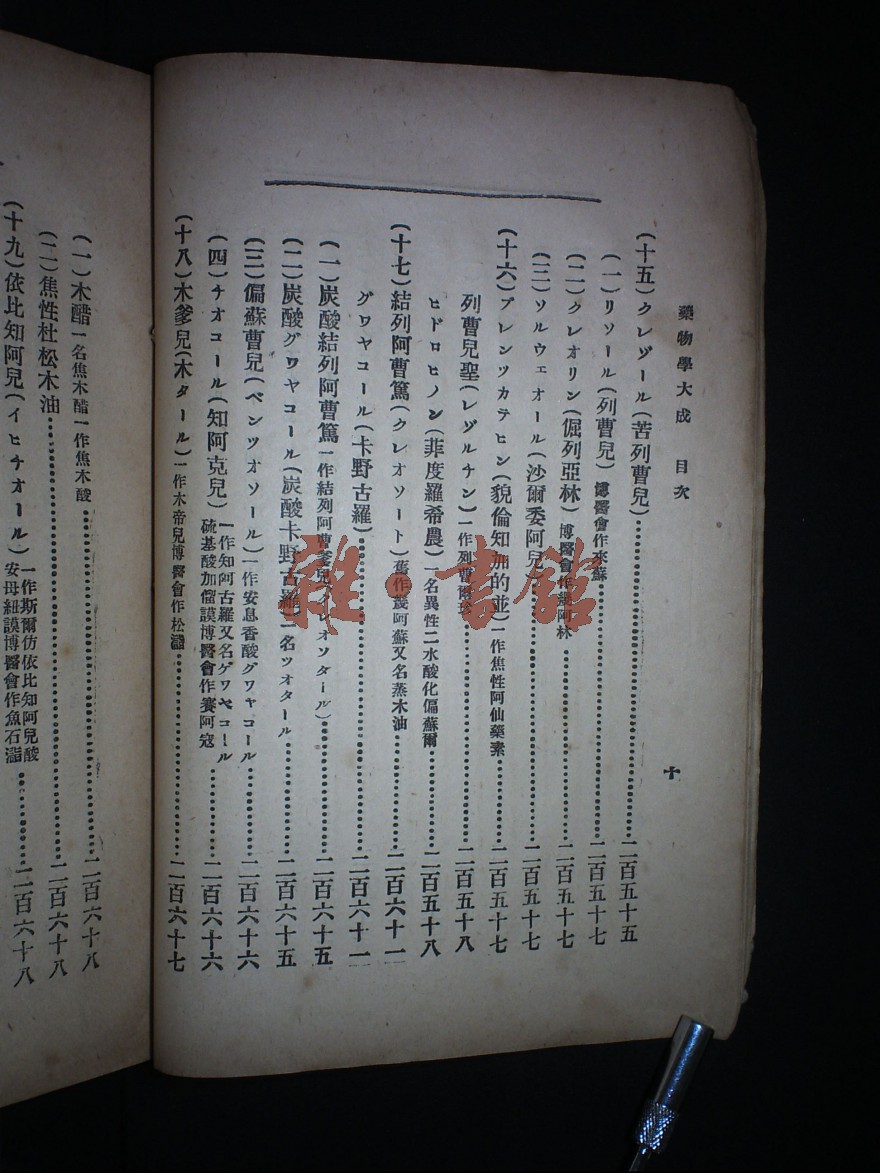 藥物學大成 目次
十
(十五)クレゾール(苦列曹兒)二百五十五
(一)リソール(列曹兒)博醫會作來蘇二百五十七
(二)クレオリン(倔列亞林)博醫會作幾阿林二百五十七
(三)ソルウェオール(沙爾委阿兒)二百五十七
(十六)ブレンツカテヒン(貌倫知加的並)一作焦性阿仙藥素二百五十七
列曹兒聖(レゾルチン)一作列曹爾珍二百五十八
ヒドロヒノン(菲度羅希農)一名異性二水酸化偏蘇爾二百五十八
(十七)結列阿曹篤(クレオソート)舊作幾阿蘇又名蒸木油二百六十一
グワヤコール(卡野古羅)二百六十一
(一)炭酸結列阿曹篤一作結列阿曹爹兒(クレオソタール)二百六十五
(二)炭酸グワヤコール(炭酸卡野古羅)一名ツオタール二百六十五
(三)偏蘇曹兒(ベンツオソール)一作安息香酸グワヤコール二百六十六
(四)チオコール(知阿克兒)一作知阿古羅又名グワヤコール
硫基酸加偹謨博醫會作賽阿寇二百六十六
(十八)木爹兒(木タール)一作木帝兒博醫會作松𣿬二百六十七
(一)木醋一名焦木醋一作焦木酸二百六十八
(二)焦性杜松木油二百六十八
(十九)依比知阿兒(イヒチオール)一作斯爾仿依比知阿兒酸
安母紐謨博醫會作魚石𣿬二百六十八
雜·書館